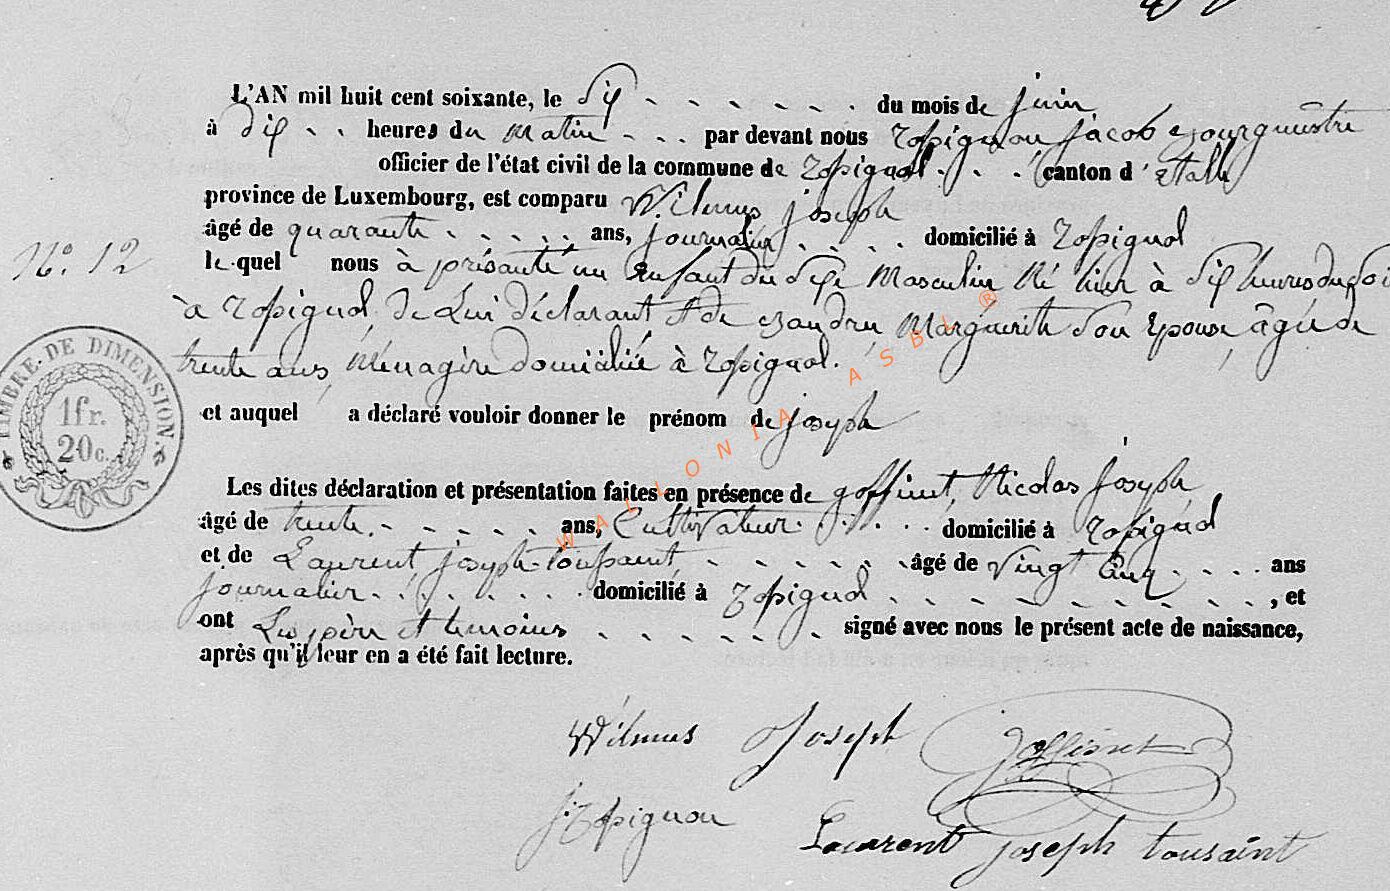 L'AN mil huit cent soixante, le dix du mois de juin
à dix heures du matin par devant nous Rossignon Jacob Bourgmestre
officier de l'état civil de la commune de Rossignol canton d'Etalle
province de Luxembourg, est comparu Wilmus joseph
âgé de quarante ans, journalier domicilié à Rossignol
N.o 12
lequel nous à présanté un Enfant du Sexe Masculin Né hier à dix heures du soi
à Rossignol de Lui déclarant et de Marguerite son Epouse âgée de
trente ans Ménagère domiciliée à Rossignol.
TIMBRE DE DIMENSION
1 fr.
20 c.
et auquel a déclaré vouloir donner le prénom de joseph
Les dites déclaration et présentation faites en présence de goffinet, Nicolas Joseph
âgé de trente ans, Cultivateur domicilié à Rossignol
et de Laurent joseph toussaint âgé de vingt cinq ans
journalier domicilié à Rossignol, et
ont Les père et temoins signé avec nous le présent acte de naissance,
après qu'il leur en a été fait lecture.
WALLONIA ASBL ®
Wilmus Joseph goffinet
J. Rossignon
Laurent joseph tousaint